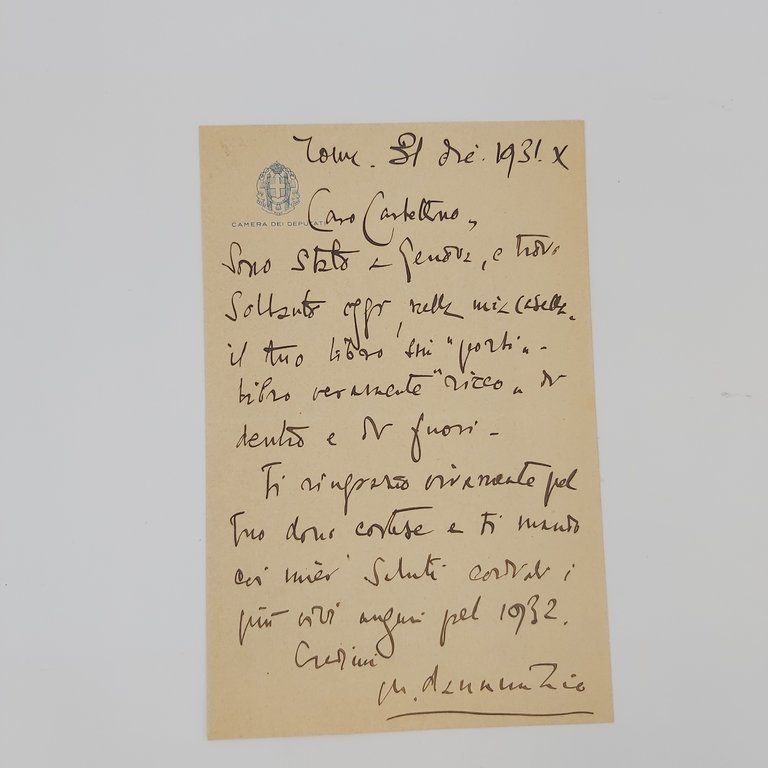 Roma. 31 dic. 1931. X
CAMERA DEI DEPUTATI
Caro Castellino,
Sono stato a Genova, e trovo
soltanto oggi, nella mia casella,
il tuo libro sui "porti" -
libro veramente "ricco" di
dentro e di fuori -
Ti ringrazio vivamente pel
tuo dono cortese e ti mando
coi miei saluti cordiali i
più vivi auguri pel 1932.
Credimi
dannunzio